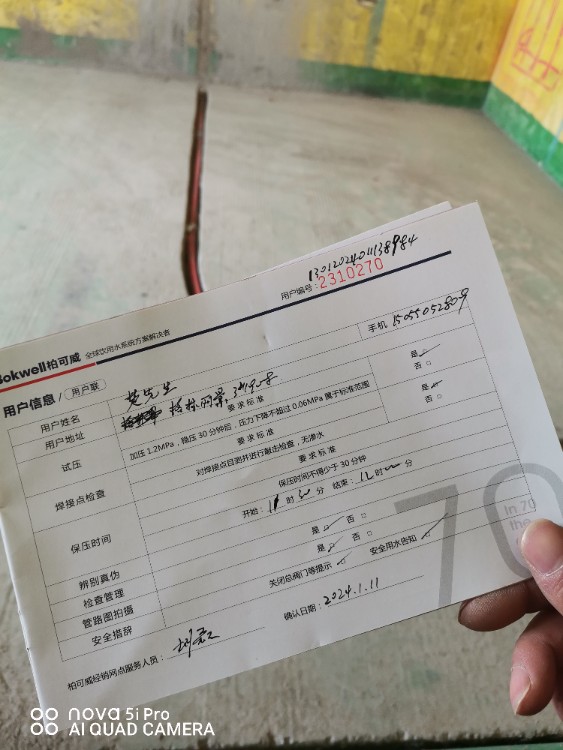 1301202401138984
用户编号: 2310270
Bokwell柏可威 全球饮用水系统方案解决者
手机 15055052809
用户信息/ 用户联
用户姓名 先生
用户地址 格林
要求标准 是
试压 加压1.2MPa，稳压30分钟后，压力下降不超过0.06MPa属于标准范围 否
要求标准 是
焊接点检查 对焊接点目测并进行敲击检查，无渗水 否
要求标准
保压时间 保压时间不得少于30分钟
开始: 11时30分 结束: 12时00分
辨别真伪 是 否
检查管理 是 否
管路图拍摄
安全措辞 关闭总阀门等提示 安全用水告知
柏可威经销网点服务人员:
确认日期: 2024.1.11
70
In 70
the
nova 5i Pro
AI QUAD CAMERA